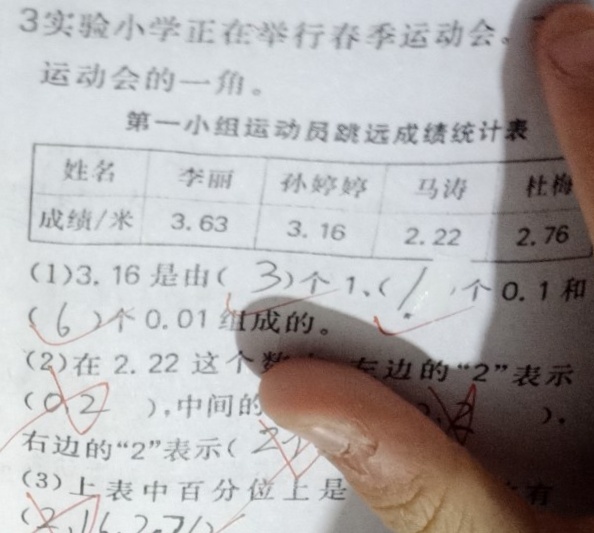 3实验小学正在举行春季运动会。
运动会的一角。
第一小组运动员跳远成绩统计表
姓名 李丽 孙婷婷 马涛 杜梅
成绩/米 3.63 3.16 2.22 2.76
(1)3.16是由( 3)个1、( 1 个0.1和
( 6 )个0.01组成的。
(2)在2.22这个数 左边的“2”表示
(0.2 ),中间的 ),
右边的“2”表示( 2
(3)上表中百分位上是 有
(2.16 2.76)